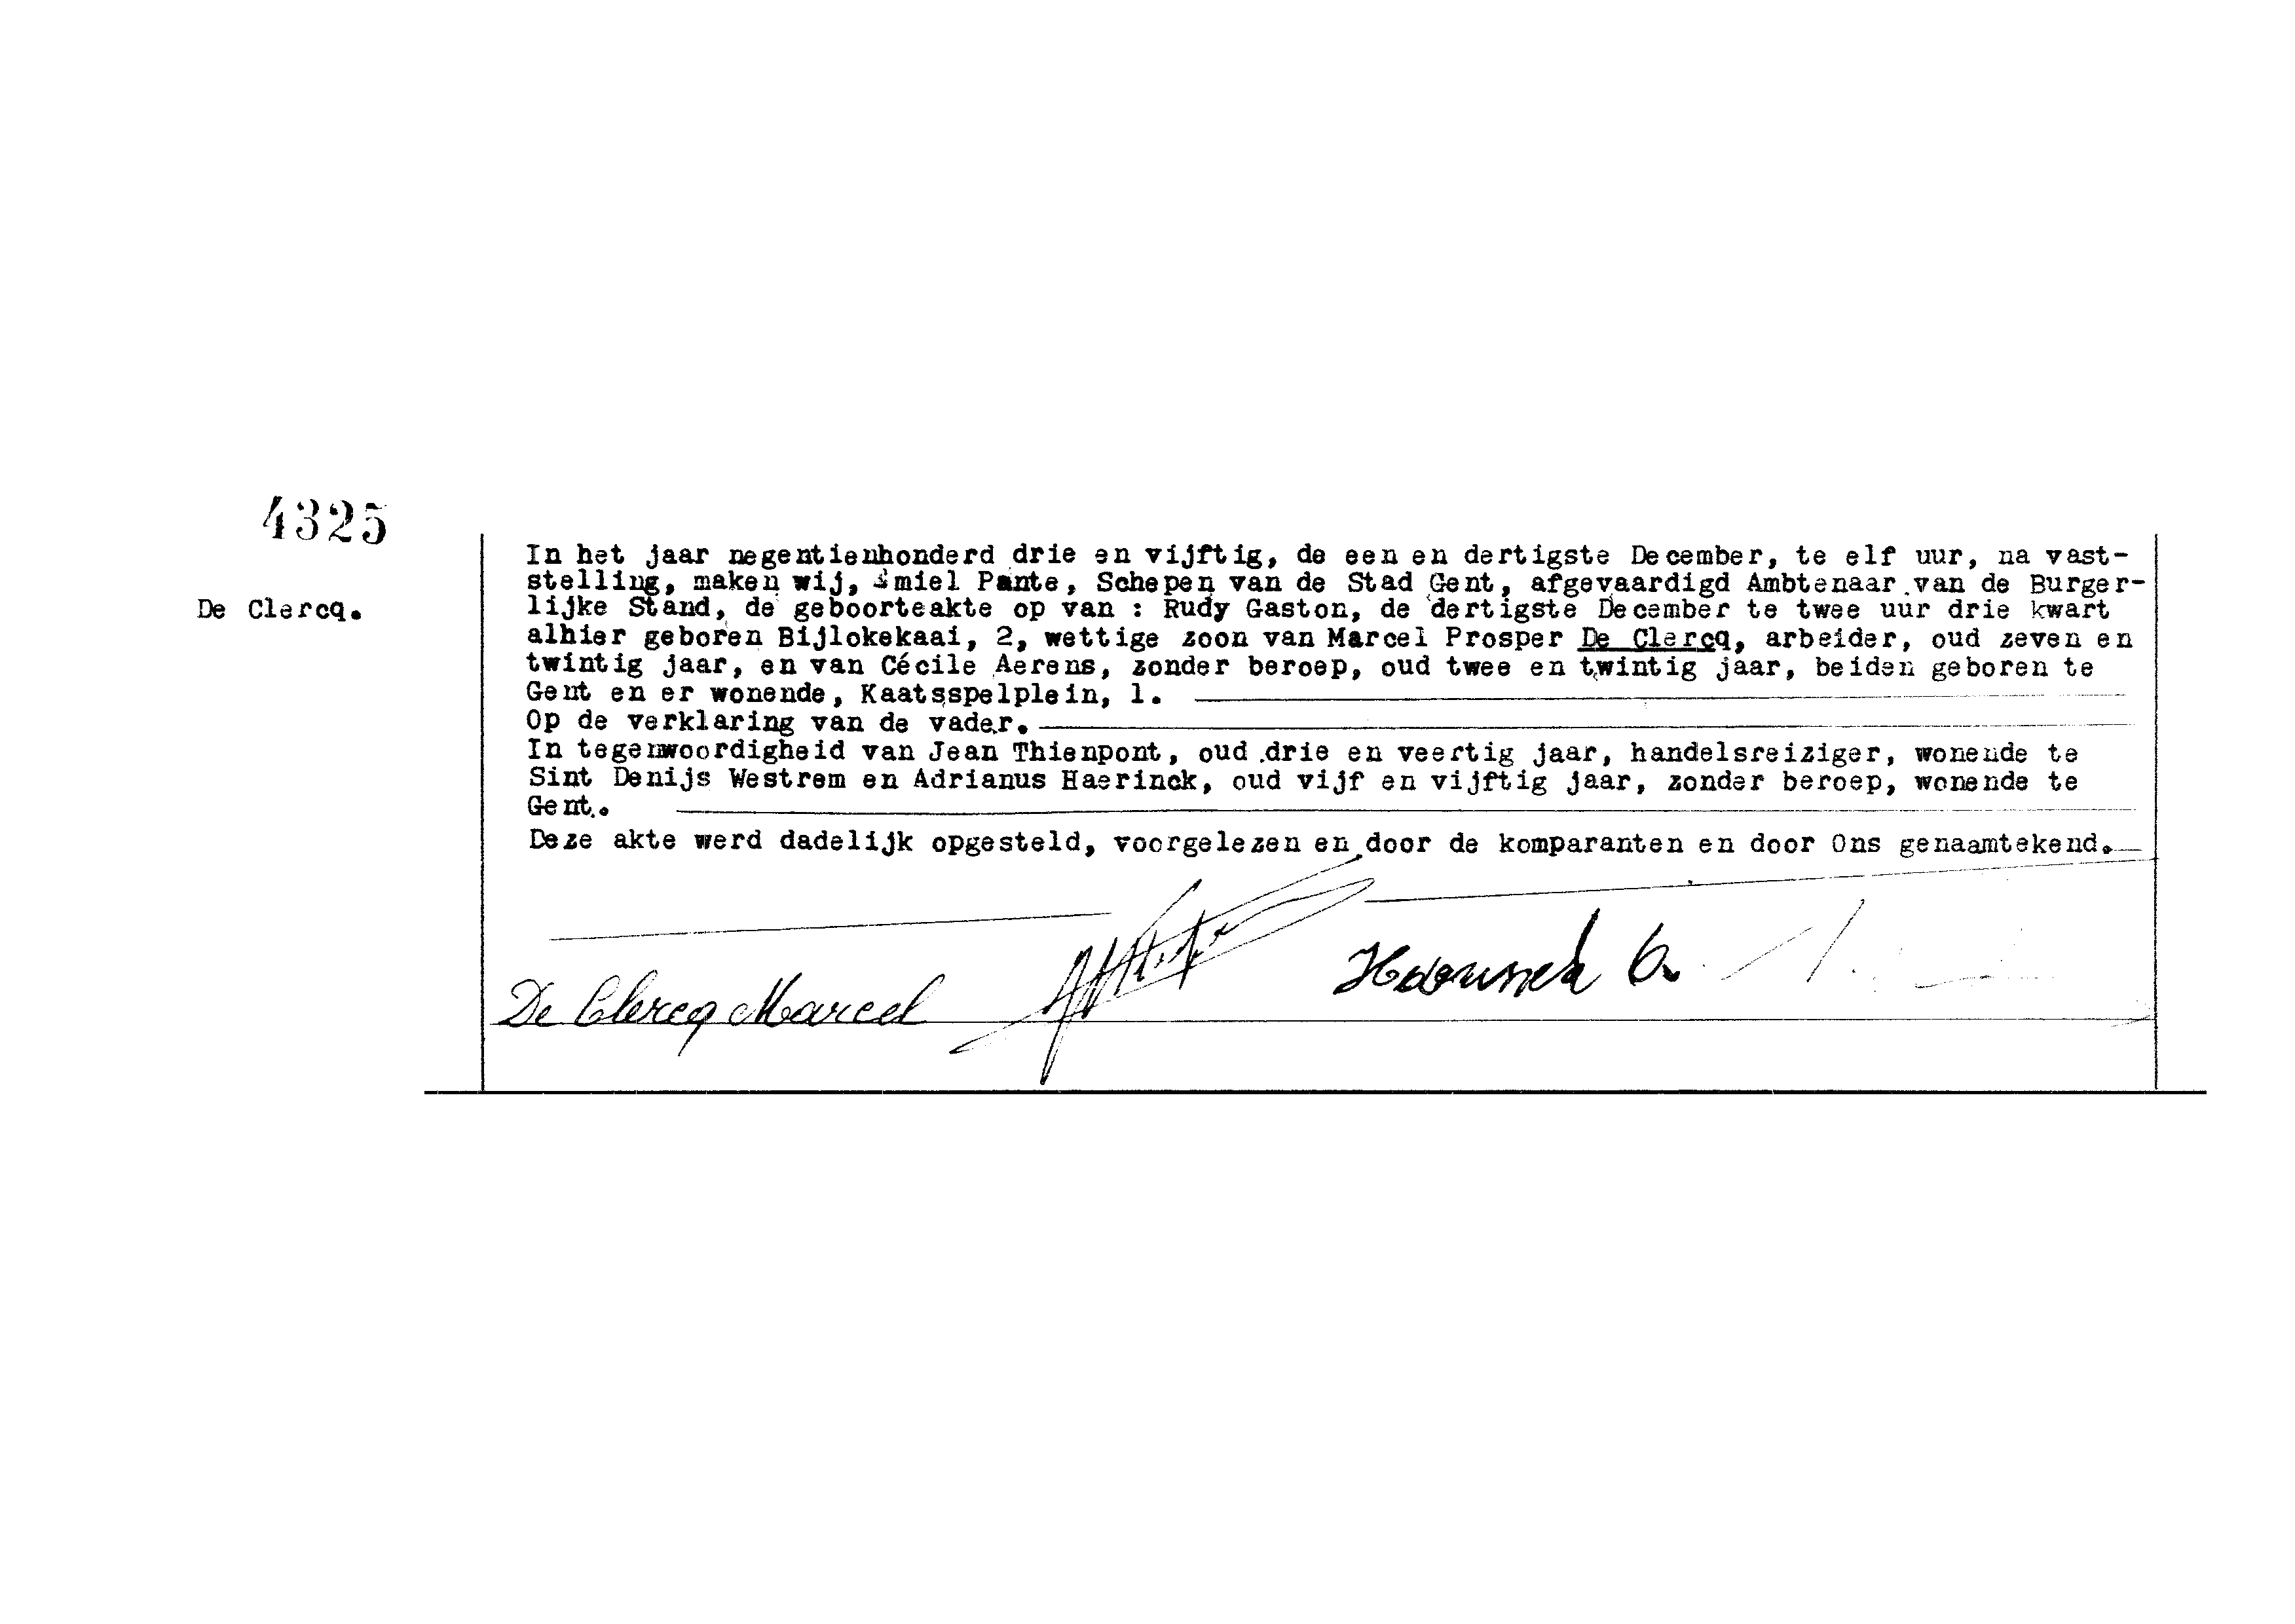 4325
De Clercq.
In het jaar negentienhonderd drie en vijftig, de een en dertigste December, te elf uur, na vast-
stelling, maken wij, Emiel Pante, Schepen van de Stad Gent, afgevaardigd Ambtenaar van de Burger-
lijke Stand, de geboorteakte op van : Rudy Gaston, de dertigste December te twee uur drie kwart
alhier geboren Bijlokekaai, 2, wettige zoon van Marcel Prosper De Clercq, arbeider, oud zeven en
twintig jaar, en van Cécile Aerens, zonder beroep, oud twee en twintig jaar, beiden geboren te
Gent en er wonende, Kaatsspelplein, 1.
Op de verklaring van de vader.
In tegenwoordigheid van Jean Thienpont, oud drie en veertig jaar, handelsreiziger, wonende te
Sint Denijs Westrem en Adrianus Haerinck, oud vijf en vijftig jaar, zonder beroep, wonende te
Gent.
Deze akte werd dadelijk opgesteld, voorgelezen en door de komparanten en door Ons genaamtekend.
De Clercq Marcel